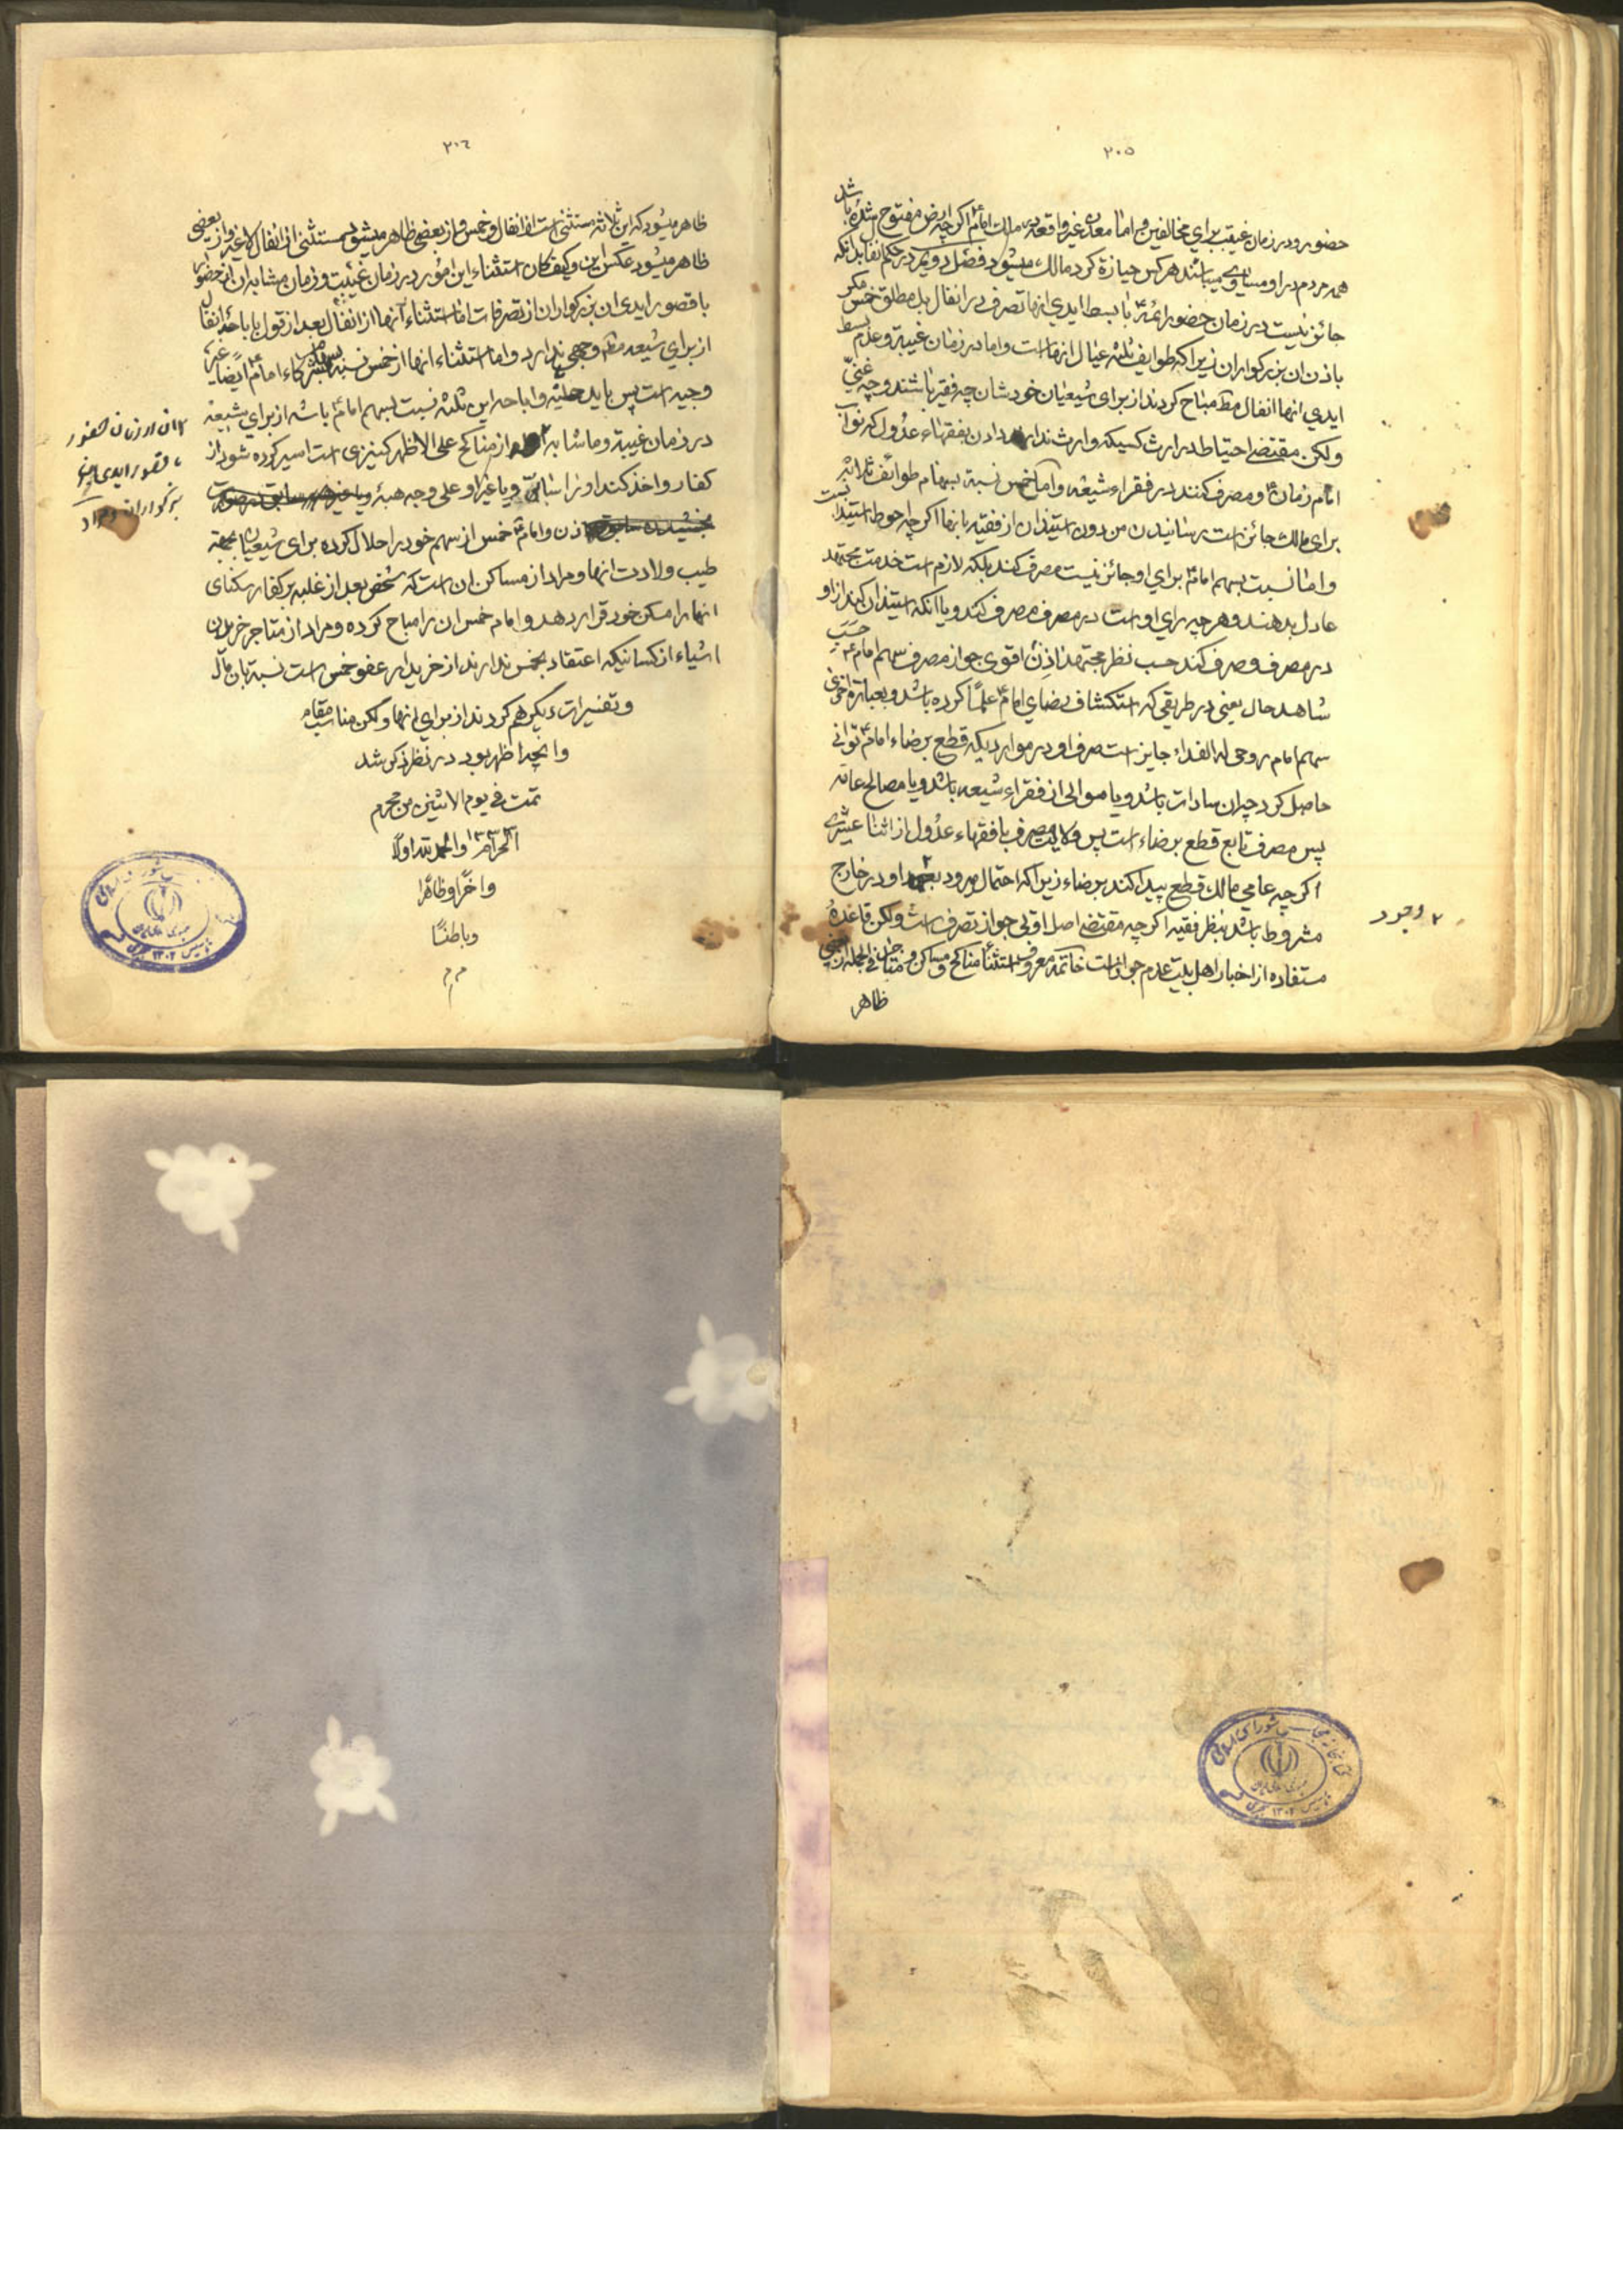 ۲۰۵
حضور و در زمان غیبت برای مخالفین و اما معادن غیر واقعه در ملک امام اگر چه ارض مفتوح شده باشد
همه مردم در او مساوی میباشند هر کس حیازة کرد مالک میشود فصل دویم در حکم انفال بدانکه
جائز نیست در زمان حضور ائمه با بسط ایدی انها تصرف در انفال بل مطلق خمس مگر
باذن ان بزرگواران زیرا که طوایف ثلثه عیال انها است و اما در زمان غیبة و عدم بسط
ایدی انها انفال مط مباح کردند از برای شیعیان خودشان چه فقیر باشند و چه غنی
ولکن مقتضی احتیاط در ارث کسیکه وارث ندارد دادن بفقهاء عدول که نواب
امام زمان و مصرف کنند در فقراء شیعه و اما خمس نسبة بسهام طوائف ثلاثه
برای مالک جائز است رسانیدن من دون استیذان از فقیه بانها اگر چه احوط استیذان است
و اما نسبت بسهم امام برای او جائز نیست مصرف کند بلکه لازم است خدمت مجتهد
عادل بدهند و هر چه رای او است در مصرف مصرف کند و یا انکه استیذان کند از او
در مصرف و صرف کند حسب نظر مجتهد اذن اقوی جواز مصرف سهم امام ع حسب
شاهد حال یعنی در طریقی که استکشاف رضای امام علما کرده باشد و بعبارة اخری
سهم امام روحی له الفداء جایز است صرف او در مواردیکه قطع برضاء امام توانی
حاصل کرد چه ان سادات باشد و یا موالی از فقراء شیعه باشد و یا مصالح عامه
پس مصرف تابع قطع برضاء است پس ولایت مصرف با فقهاء عدول از اثنا عشری
اگر چه عامی مالک قطع پیدا کند برضاء زیرا که احتمال میرود او در خارج
۲ وجود
مشروط باشد بنظر فقیه اگر چه مقتضی اصل اولی جواز تصرف است ولکن قاعدهٔ
مستفاده از اخبار اهل بیت عدم جواز است خاتمه معروف استثنا مناکح و مساکن و متاجر فی الجمله از بعضی
ظاهر
۲۰۶
ظاهر میشود که این ثلاثه مستثنی است از انفال و خمس و از بعضی ظاهر میشود مستثنی از انفال لا غیر و از بعضی
ظاهر میشود عکس این و کیف کان استثناء این امور در زمان غیبت و زمان مشابه ان از حضور
با قصور ایدی ان بزرکواران از تصرفات اما استثناء آنها از انفال بعد از قول باباحه انفال
از برای شیعه مط وجهی ندارد و اما استثناء انها از خمس نسبة بسهام شرکاء امام ایضا غیر
وجیه است پس باید حلیة و اباحه این ثلثه نسبت بسهم امام باشد از برای شیعه
در زمان غیبة و ما شابه از مناکح علی الاظهر کنیزی است اسیر کرده شود از
۲ ان از زمان حضور
با قصور ایدی این
بزرگواران و مراد
کفار و اخذ کند او را شیعه و یا غیر او علی وجه هبه
اذن و امام خمس از سهم خود را حلال کرده برای شیعیان بجهة
طیب ولادت انها و مراد از مساکن ان است که شخص بعد از غلبه بر کفار سکنای
انها را مسکن خود قرار دهد و امام خمس ان را مباح کرده و مراد از متاجر خریدن
اشیاء از کسانیکه اعتقاد بخمس ندارند از خریدار عفو خمس است نسبة بان مال
و تفسیرات دیگر هم کردند از برای انها ولکن مناسب مقام
و انچه اظهر بود در نظر ذکر شد
تمت فی یوم الاثنین من محرم
الحرام ۱۳۳۳ و الحمد لله اولا
و اخرا و ظاهرا
و باطنا
م م
م
کتابخانه مجلس شورای اسلامی
جمهوری اسلامی ایران
تاسیس ۱۳۰۲ هجری